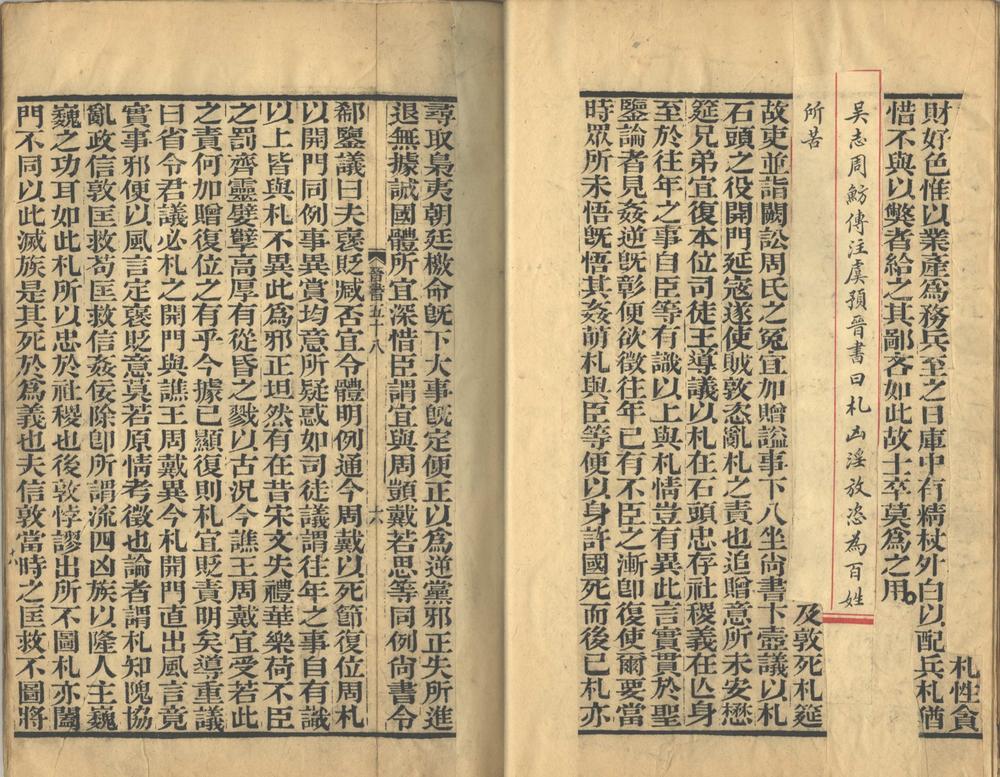 札性貪
財好色惟以業產爲務兵至之日庫中有精杖外白以配兵札猶
惜不與以獘者給之其鄙吝如此故士卒莫爲之用
吴志周魴傳注虞預晉書曰札凶淫放恣為百姓
所苦
及敦死札筵
故吏並詣闕訟周氏之冤宜加贈諡事下八坐尚書卞壼議以札
石頭之役開門延寇遂使賊敦恣亂札之責也追贈意所未安懋
筵兄弟宜復本位司徒王導議以札在石頭忠存社稷義在亾身
至於往年之事自臣等有識以上與札情豈有異此言實貫於聖
鑒論者見姦逆旣彰便欲徵往年已有不臣之漸卽復使爾要當
時眾所未悟旣悟其姦萌札與臣等便以身許國死而後已札亦
尋取梟夷朝廷檄命旣下大事旣定便正以爲逆黨邪正失所進
退無據誠國體所宜深惜臣謂宜與周顗戴若思等同例尚書令
晉書五十八
十六
郗鑒議曰夫襃貶臧否宜令體明例通今周戴以死節復位周札
以開門同例事異賞均意所疑惑如司徒議謂往年之事自有識
以上皆與札不異此爲邪正坦然有在昔宋文失禮華樂荷不臣
之罰齊靈嬖孽高厚有從昏之戮以古況今譙王周戴宜受若此
之責何加贈復位之有乎今據已顯復則札宜貶責明矣導重議
曰省令君議必札之開門與譙王周戴異今札開門直出風言竟
實事邪便以風言定襃貶意莫若原情考徵也論者謂札知隗協
亂政信敦匡救苟匡救信姦佞除卽所謂流四凶族以隆人主巍
巍之功耳如此札所以忠於社稷也後敦悖謬出所不圖札亦闔
門不同以此滅族是其死於爲義也夫信敦當時之匡救不圖將